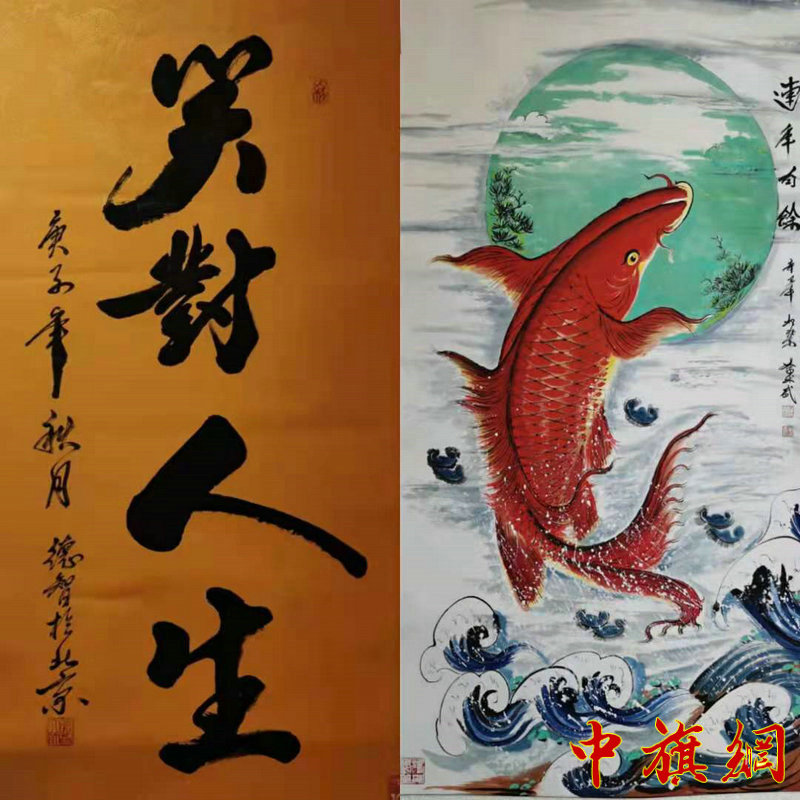 笑對人生
庚子年秋月
德智於北京
連年有餘
中旗網